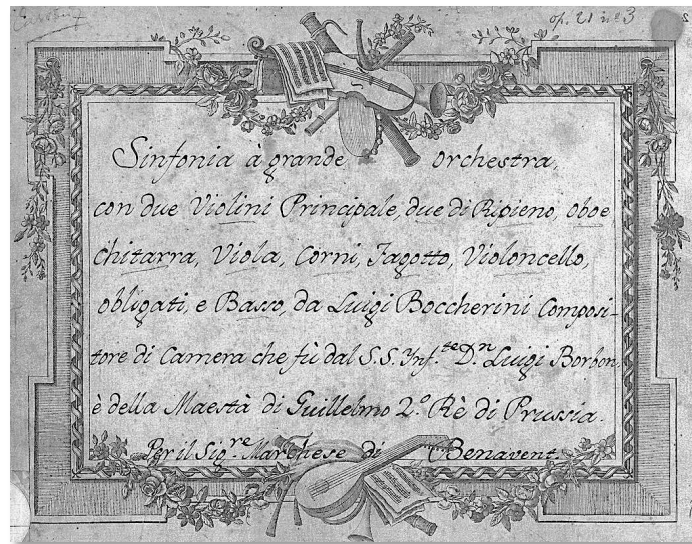 op. 21 nº 3
Sinfonia à grande orchestra,
con due Violini Principale, due di Ripieno, oboe
chitarra, Viola, Corni, Fagotto, Violoncello,
obligati, e Basso, da Luigi Boccherini Composi-
tore di Camera che fù dal S.S. Ynf.te D.n Luigi Borbon,
è della Maestà di Guillelmo 2.º Rè di Prussia.
Per il Sig.re Marchese di Benavent.